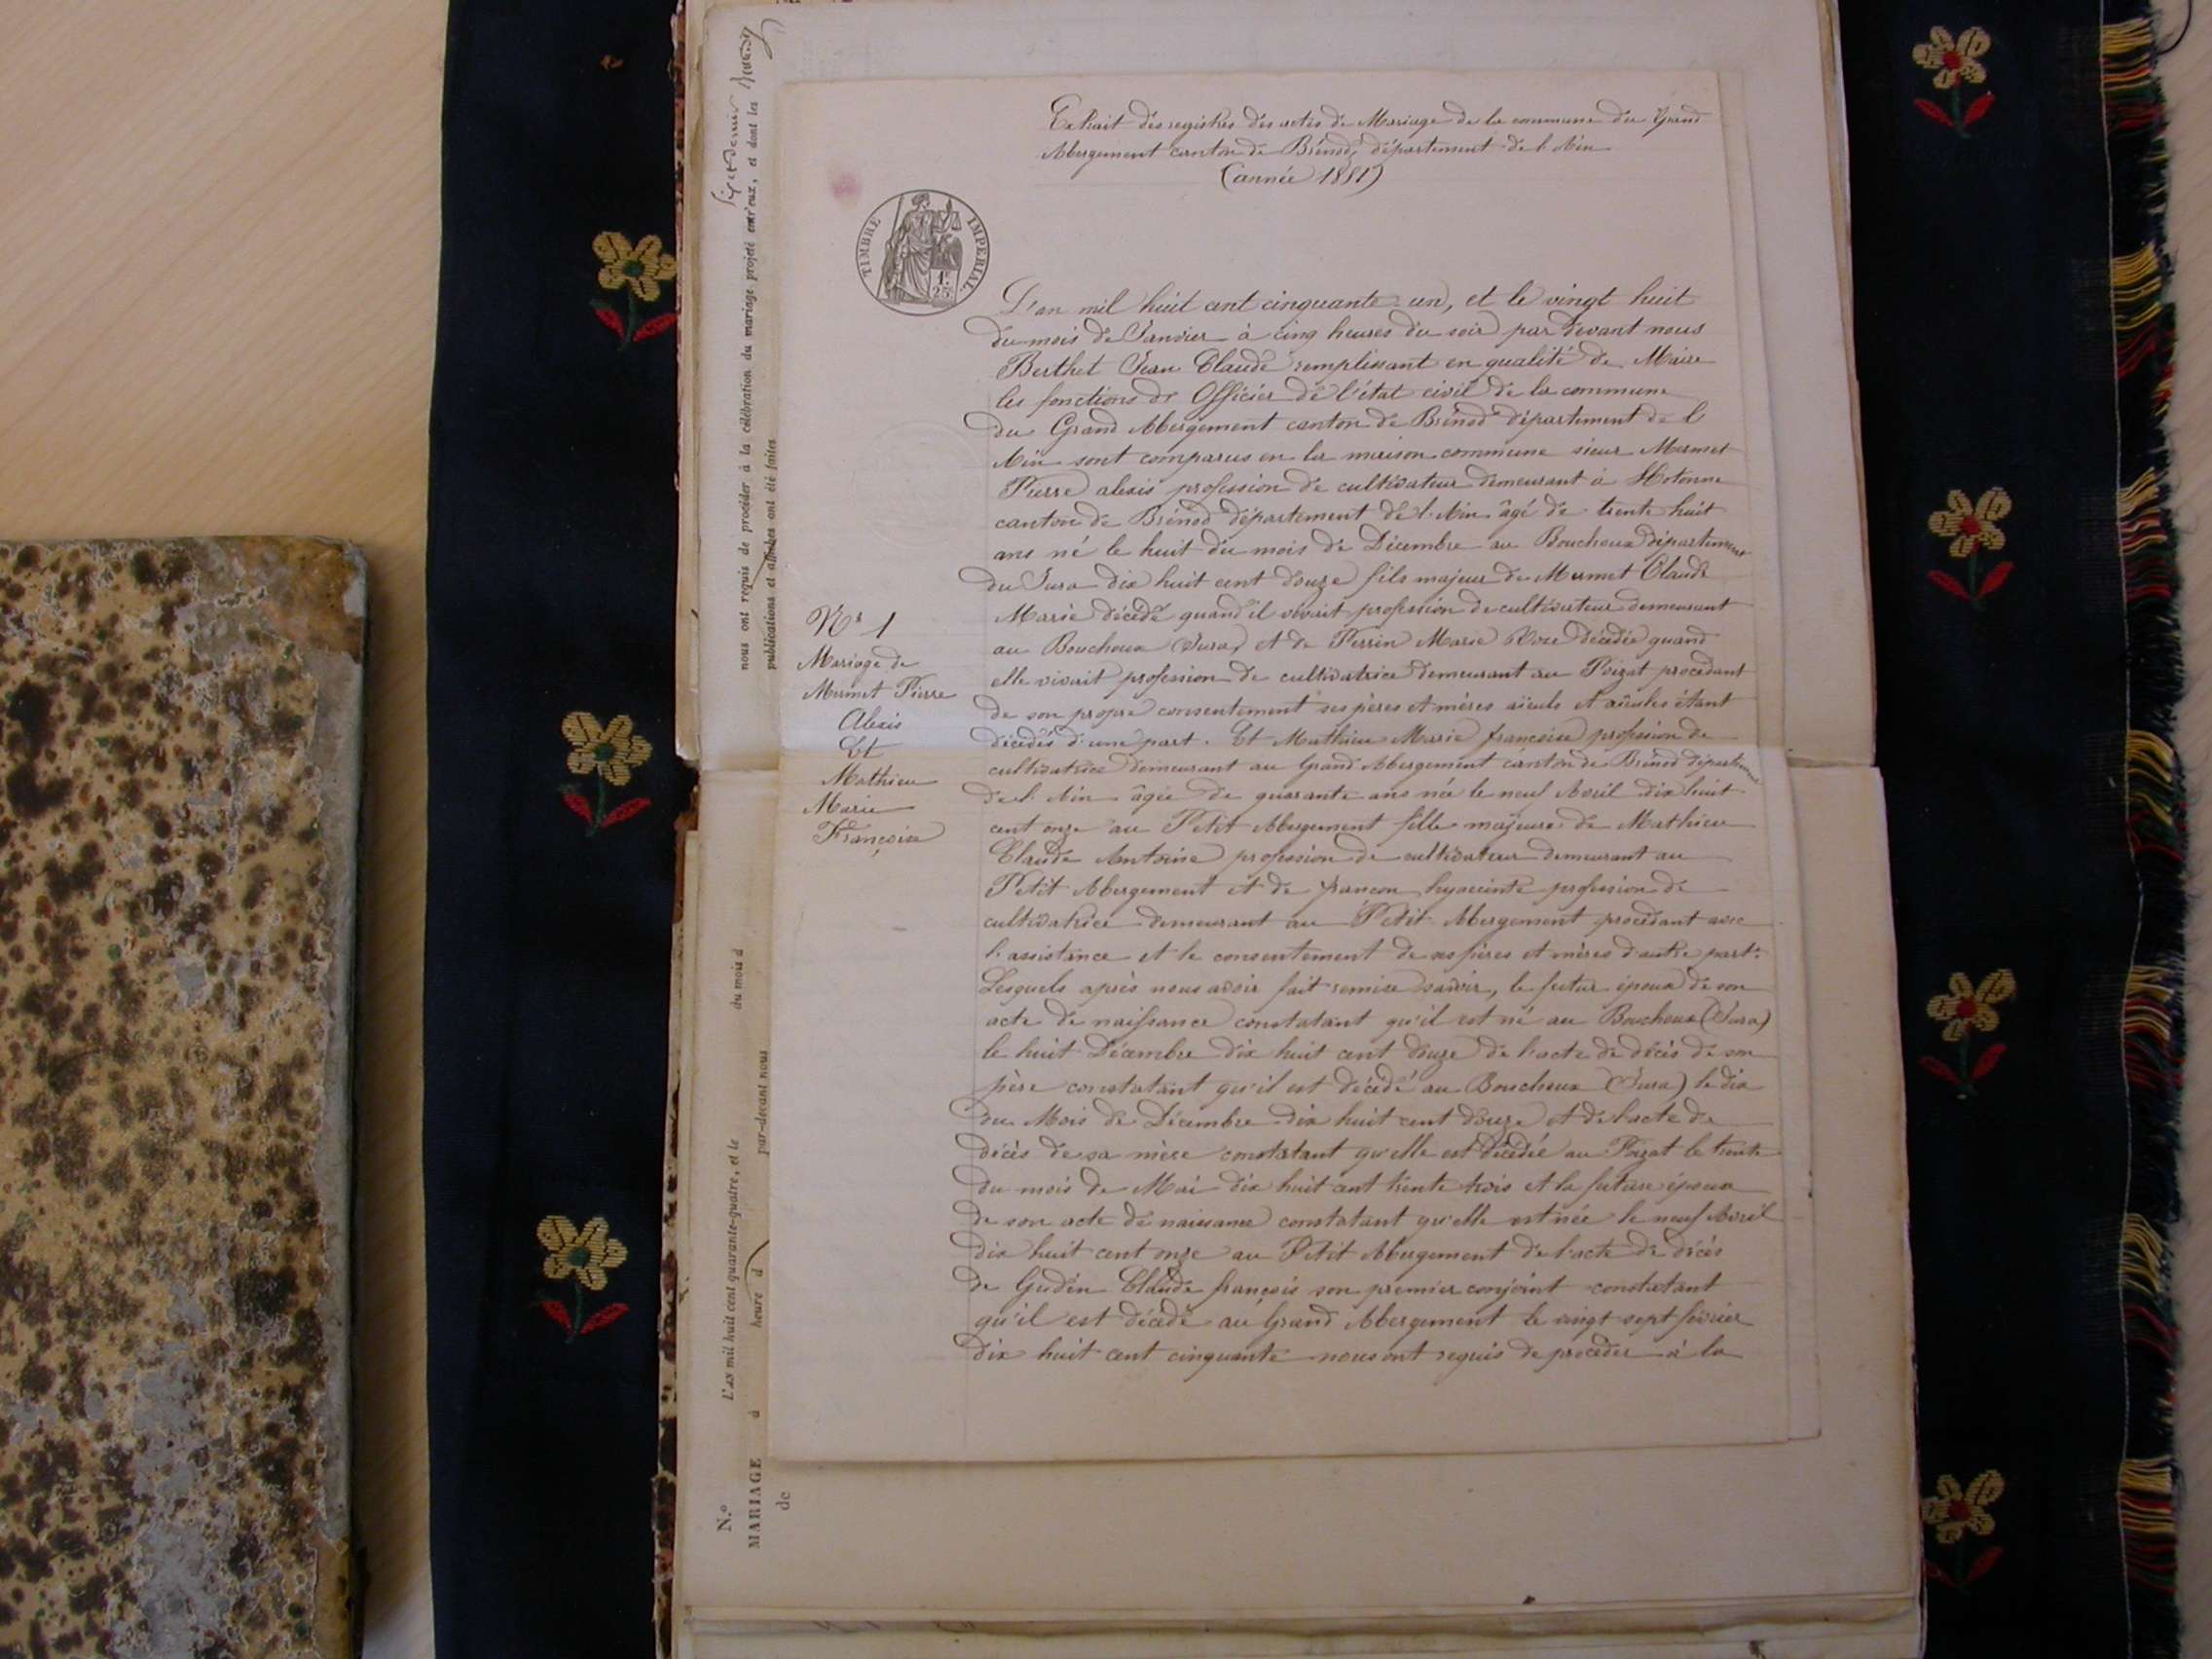 Extrait des registres des actes de Mariage de la commune du Grand
Abergement canton de Brénod, département de l'Ain
(année 1851)
TIMBRE IMPERIAL
1F.
25c.
L'an mil huit cent cinquante-un, et le vingt huit
du mois de Janvier à cinq heures du soir par devant nous
Berthet Jean Claude remplissant en qualité de Maire
les fonctions de Officier de l'état civil de la commune
du Grand Abergement canton de Brénod département de l
Ain sont comparus en la maison commune sieur Mermet
Pierre alexis profession de cultivateur demeurant à Hotonne
canton de Brénod département de l'Ain âgé de trente huit
ans né le huit du mois de Décembre au Bouchoux département
du Jura dix huit cent douze fils majeur de Mermet Claude
Marie décédé quand il vivait profession de cultivateur demeurant
au Bouchoux (Jura) et de Perrin Marie Roze décédée quand
elle vivait profession de cultivatrice demeurant au Poizat procédant
de son propre consentement ses pères et mères aïeuls et aïeules étant
décédés d'une part. Et Mathieu Marie françoise profession de
cultivatrice demeurant au Grand Abergement canton de Brénod département
de l'Ain âgée de quarante ans née le neuf Avril dix huit
cent onze au Petit Abergement fille majeure de Mathieu
Claude Antoine profession de cultivateur demeurant au
Petit Abergement et de françon hyacinte profession de
cultivatrice demeurant au Petit Abergement procédant avec
l'assistance et le consentement de ses pères et mères d'autre part.
Lesquels après nous avoir fait remise savoir, le futur époux de son
acte de naissance constatant qu'il est né au Bouchoux (Jura)
le huit Décembre dix huit cent douze de l'acte de décès de son
père constatant qu'il est décédé au Bouchoux (Jura) le dix
du Mois de Décembre dix huit cent douze et de l'acte de
décès de sa mère constatant qu'elle est décédée au Poizat le trente
du mois de Mai dix huit cent trente trois et la future épouse
de son acte de naissance constatant qu'elle est née le neuf Avril
dix huit cent onze au Petit Abergement de l'acte de décès
de Gudin Claude françois son premier conjoint constatant
qu'il est décédé au Grand Abergement le vingt sept février
dix huit cent cinquante nous ont requis de procéder à la
No 1
Mariage de
Mermet Pierre
Alexis
Et
Mathieu
Marie
Françoise
nous ont requis de procéder à la célébration du mariage projeté entr'eux, et dont les
publications et affiches ont été faites
N.o
MARIAGE
de
L'AN mil huit cent quarante-quatre, et le
du mois d
à
heure d
par-devant nous